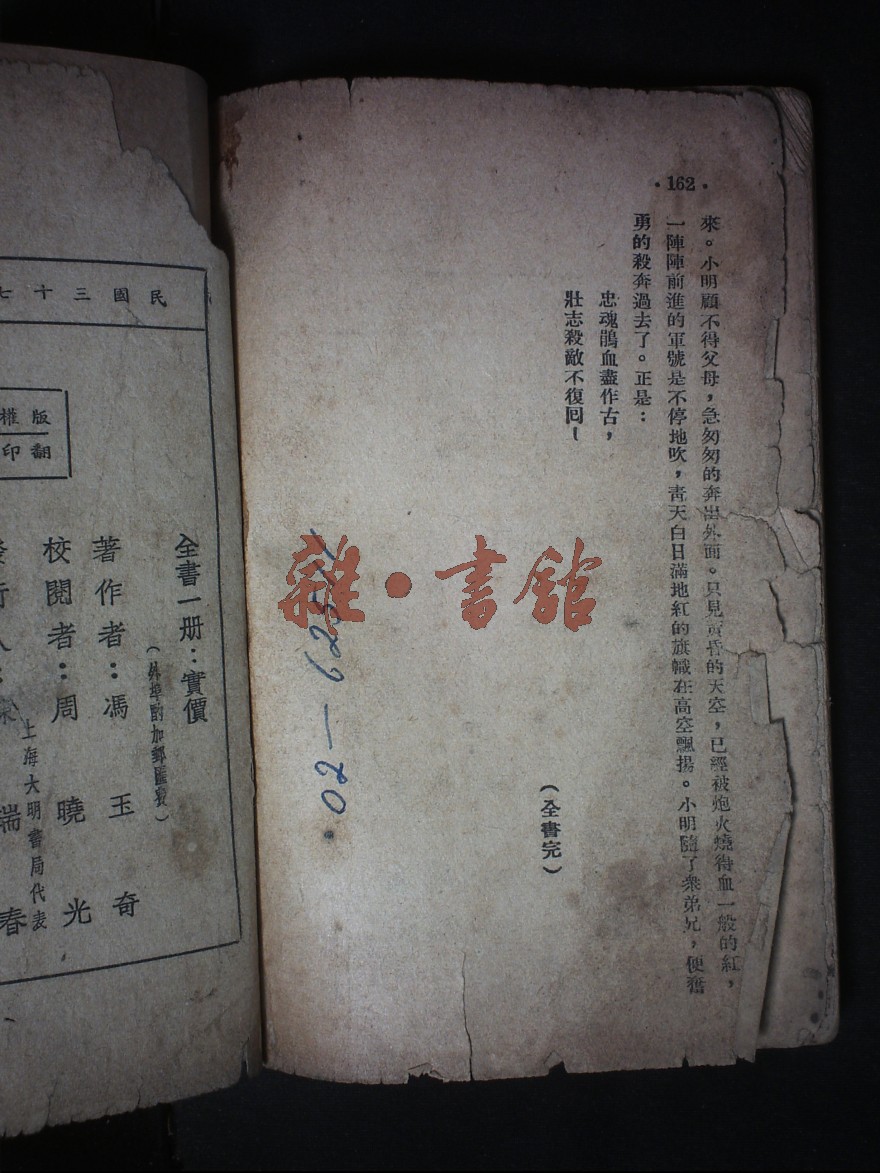 ·162·
來。小明顧不得父母，急匆匆的奔出外面。只見黃昏的天空，已經被炮火燒得血一般的紅，
一陣陣前進的軍號是不停地吹，靑天白日滿地紅的旗幟在高空飄揚。小明隨了衆弟兄，便奮
勇的殺奔過去了。正是：
忠魂鵑血盡作古，
壯志殺敵不復回！
（全書完）
雜·書館
民國三十七
版權
翻印
全書一册：實價
（外埠酌加郵匯費）
著作者：馮玉奇
校閱者：周曉光
上海大明書局代表
發行人：
瑞春